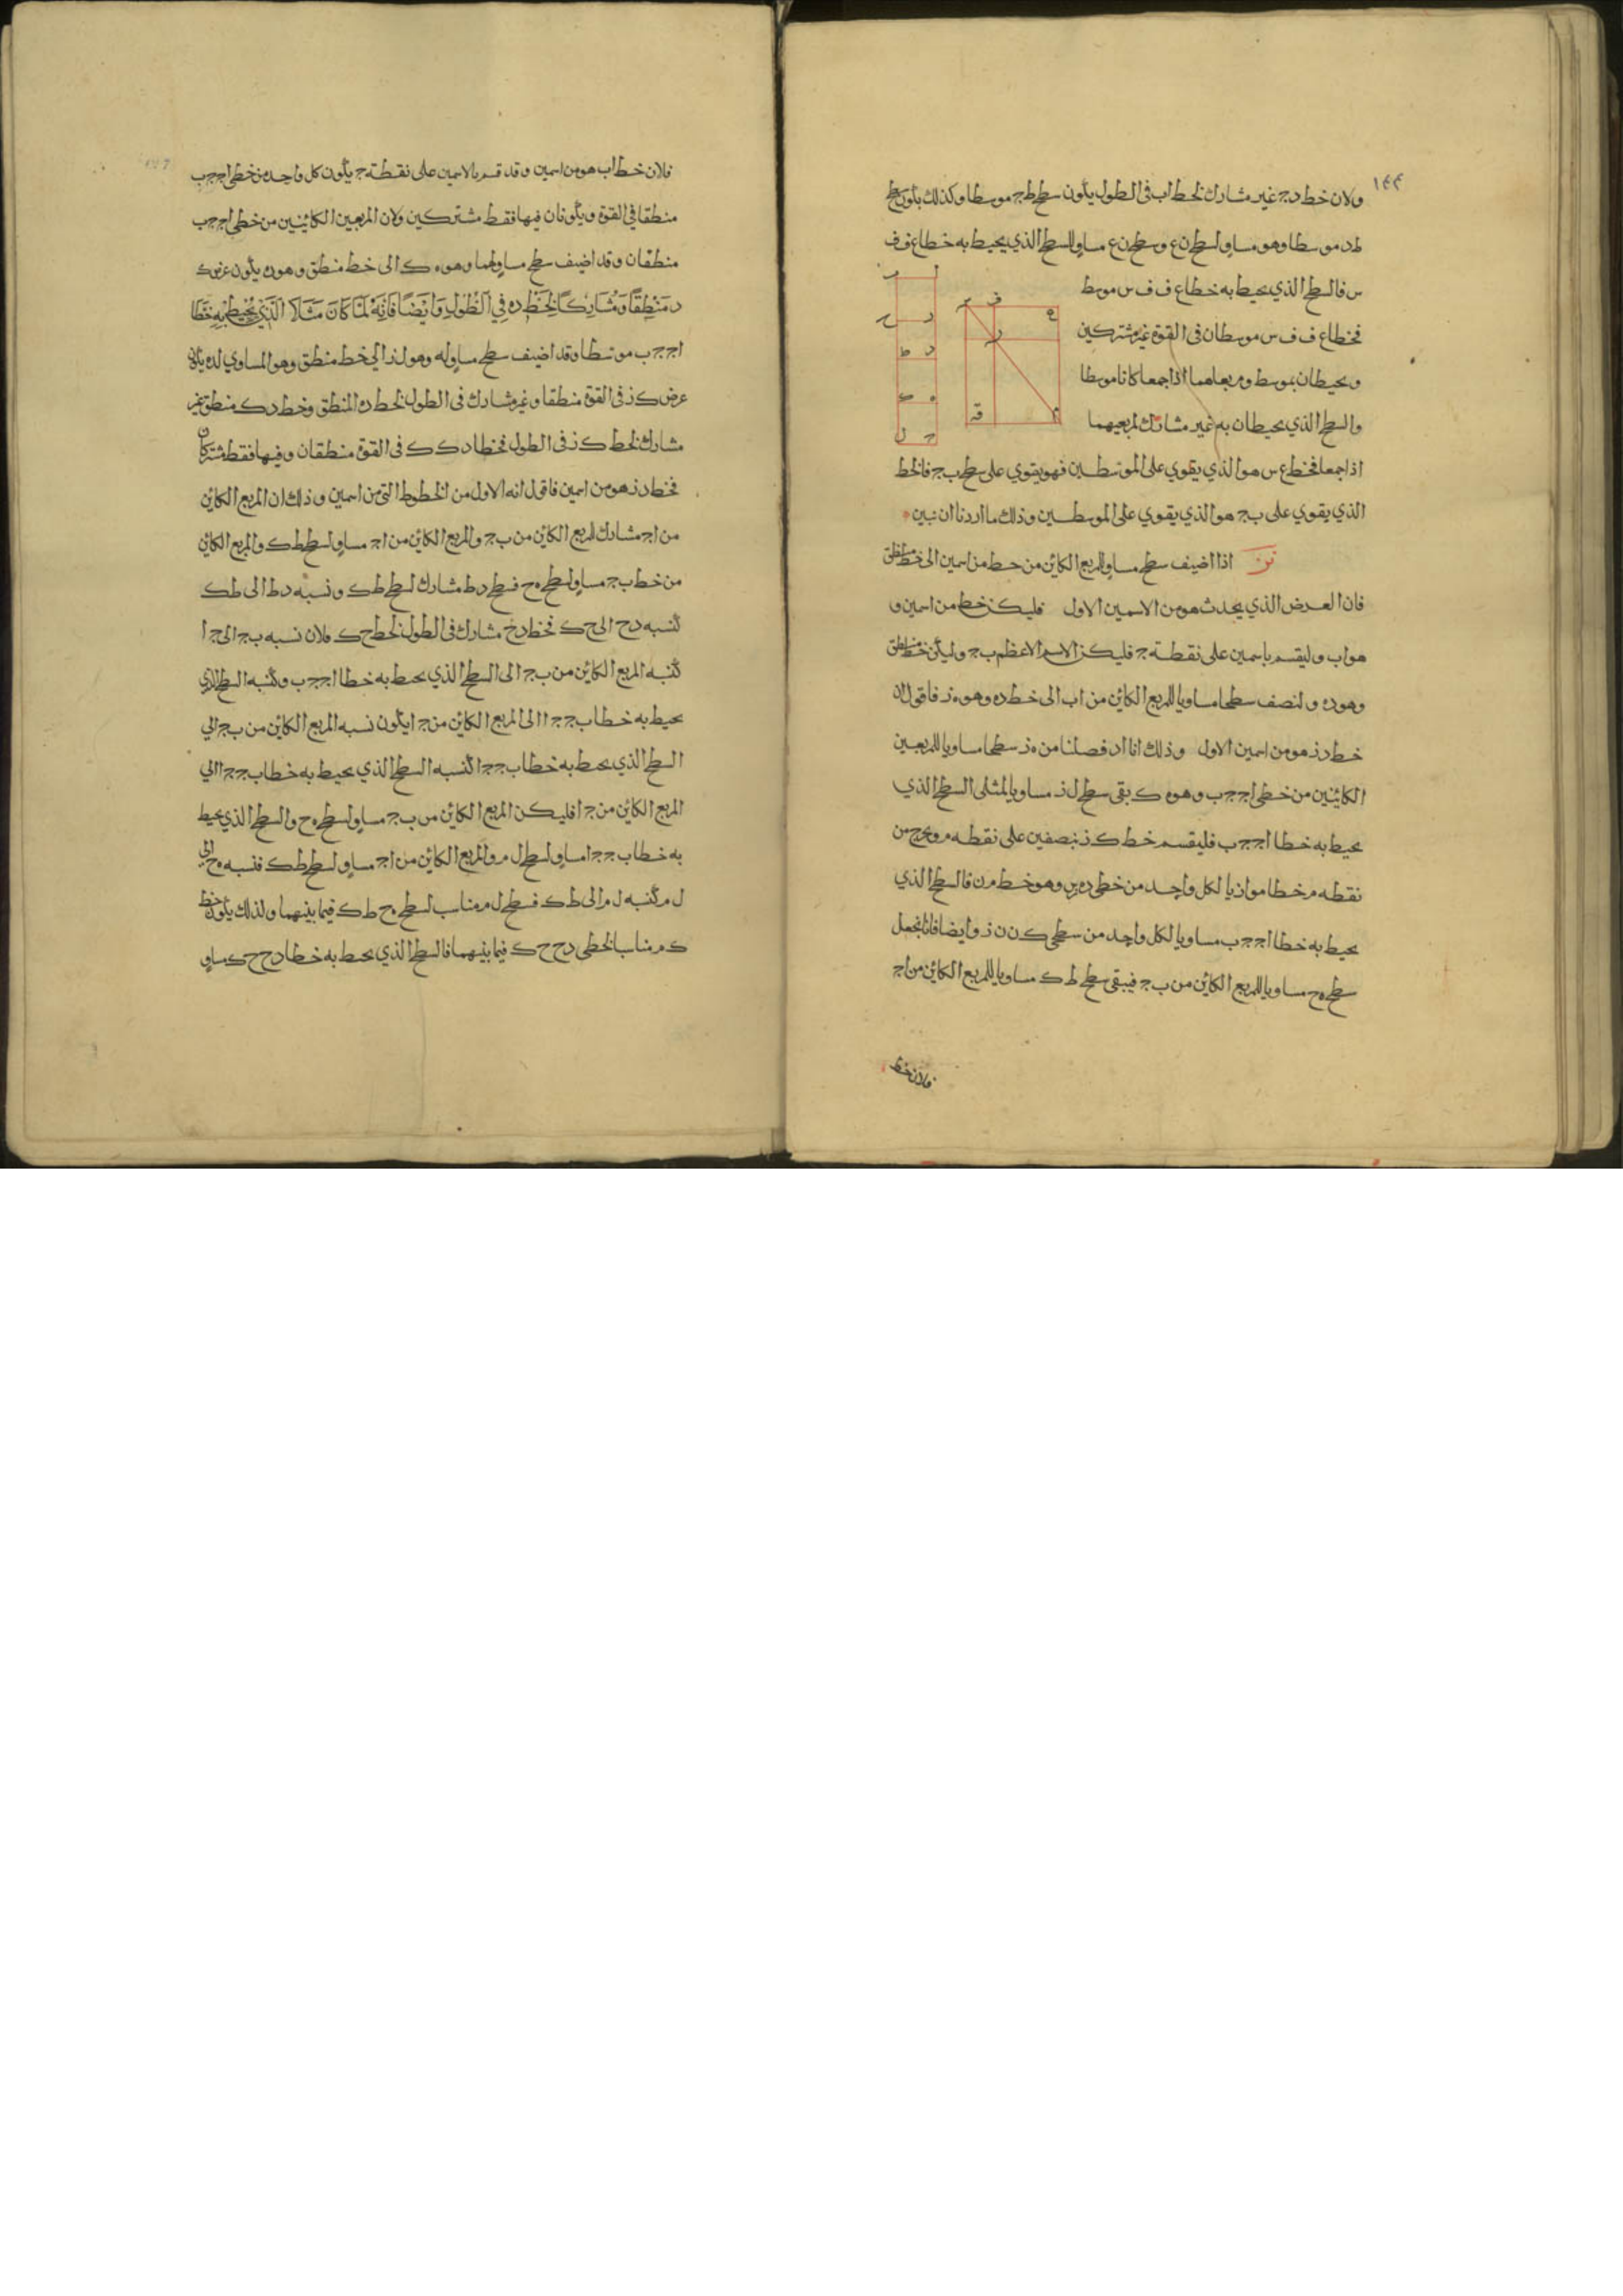 ١٤٣
ولان خط د ج غير مشارك لخط اب في الطول يكون سطح ط ج موسطا وكذلك يكون سطح
ط د موسطا وهو مساو لسطح ن ع وسطح ن ع مساو للسطح الذي يحيط به خطا ع ف ف
س فالسطح الذي يحيط به خطا ع ف ف س موسط
فخطا ع ف ف س موسطان في القوة غير مشتركين
ويحيطان بموسط ومربعاهما اذا جمعا كانا موسطا
والسطح الذي يحيطان به غير مشارك لمربعيهما
اذا جمعا فخط ع س هو الذي يقوي على الموسطين فهو يقوي على سطح ب ج فالخط
الذي يقوي على ب ج هو الذي يقوي على الموسطين وذلك ما اردنا ان نبين
نز اذا اضيف سطح مساو للمربع الكاين من خط من اسمين الى خط منطق
فان العرض الذي يحدث هو من الاسمين الاول فليكن خط من اسمين و
هو اب وليقسم باسمين على نقطة ج فليكن الاسم الاعظم ب ج وليكن خط منطق
وهو ده ولنضف سطحا مساويا للمربع الكاين من اب الى خط ده وهو ه ز فاقول ان
خط د ز هو من اسمين الاول وذلك انا ان فصلنا من ه ز سطحا مساويا للمربعين
الكاينين من خطي ا ج ج ب وهو ه ك بقى سطح ل ز مساويا لمثلي السطح الذي
يحيط به خطا ا ج ج ب فليقسم خط ك ز بنصفين على نقطه م ويخرج من
نقطه م خطا موازيا لكل واحد من خطي ده وهو خط م ن فالسطح الذي
يحيط به خطا ا ج ج ب مساويا لكل واحد من سطحي ك ن ن ز وايضا فانا نجعل
سطح ه ح مساويا للمربع الكاين من ب ج فيبقى سطح ط ك مساويا للمربع الكاين من ا ج
فلان خط
فلان خط اب هو من اسمين وقد قسم بالاسمين على نقطة ج يكون كل واحد من خطي ا ج ج ب
منطقا في القوة ويكونان فيها فقط مشتركين ولان المربعين الكاينين من خطي ا ج ج ب
منطقان وقد اضيف سطح مساو لهما وهو ه ك الى خط منطق وهو ده يكون عرض ك
د منطقا ومشاركا لخط ده في الطول وايضا فانه لما كان مثلا الذي يحيط به خطا
ا ج ج ب موسطا وقد اضيف سطح مساو له وهو ل ز الى خط منطق وهو المساوي لده يكون
عرض ك ز في القوة منطقا وغير مشارك في الطول لخط ده المنطق وخط د ك منطق غير
مشارك لخط ك ز في الطول فخطا د ك ك في القوة منطقان وفيها فقط مشتركان
فخط د ز هو من اسمين فاقول انه الاول من الخطوط التي من اسمين وذلك ان المربع الكاين
من ا ج مشارك للمربع الكاين من ب ج والمربع الكاين من ا ج مساو لسطح ط ك والمربع الكاين
من خط ب ج مساو لسطح ه ح فسطح د ط مشارك لسطح ط ك ونسبه د ط الى ط ك
كنسبه د ح الى ح ك فخط د ح مشارك في الطول لخط ح ك فلان نسبه ب ج الى ج ا
كنسبه المربع الكاين من ب ج الى السطح الذي يحيط به خطا ا ج ج ب وكنسبه السطح الذي
يحيط به خطا ب ج ج ا الى المربع الكاين من ج ا يكون نسبه المربع الكاين من ب ج الى
السطح الذي يحيط به خطا ب ج ج ا كنسبه السطح الذي يحيط به خطا ب ج ج ا الى
المربع الكاين من ج ا فليكن المربع الكاين من ب ج مساو لسطح ه ح والسطح الذي يحيط
به خطا ب ج ج ا مساو لسطح ل م والمربع الكاين من ا ج مساو لسطح ط ك فنسبه ه ح الى
ل م كنسبه ل م الى ط ك فسطح ل م مناسب لسطح ه ح ط ك فيما بينهما ولذلك يكون خط
ك م مناسب لخطي د ح ح ك فيما بينهما فالسطح الذي يحيط به خطا د ح ح ك مساو